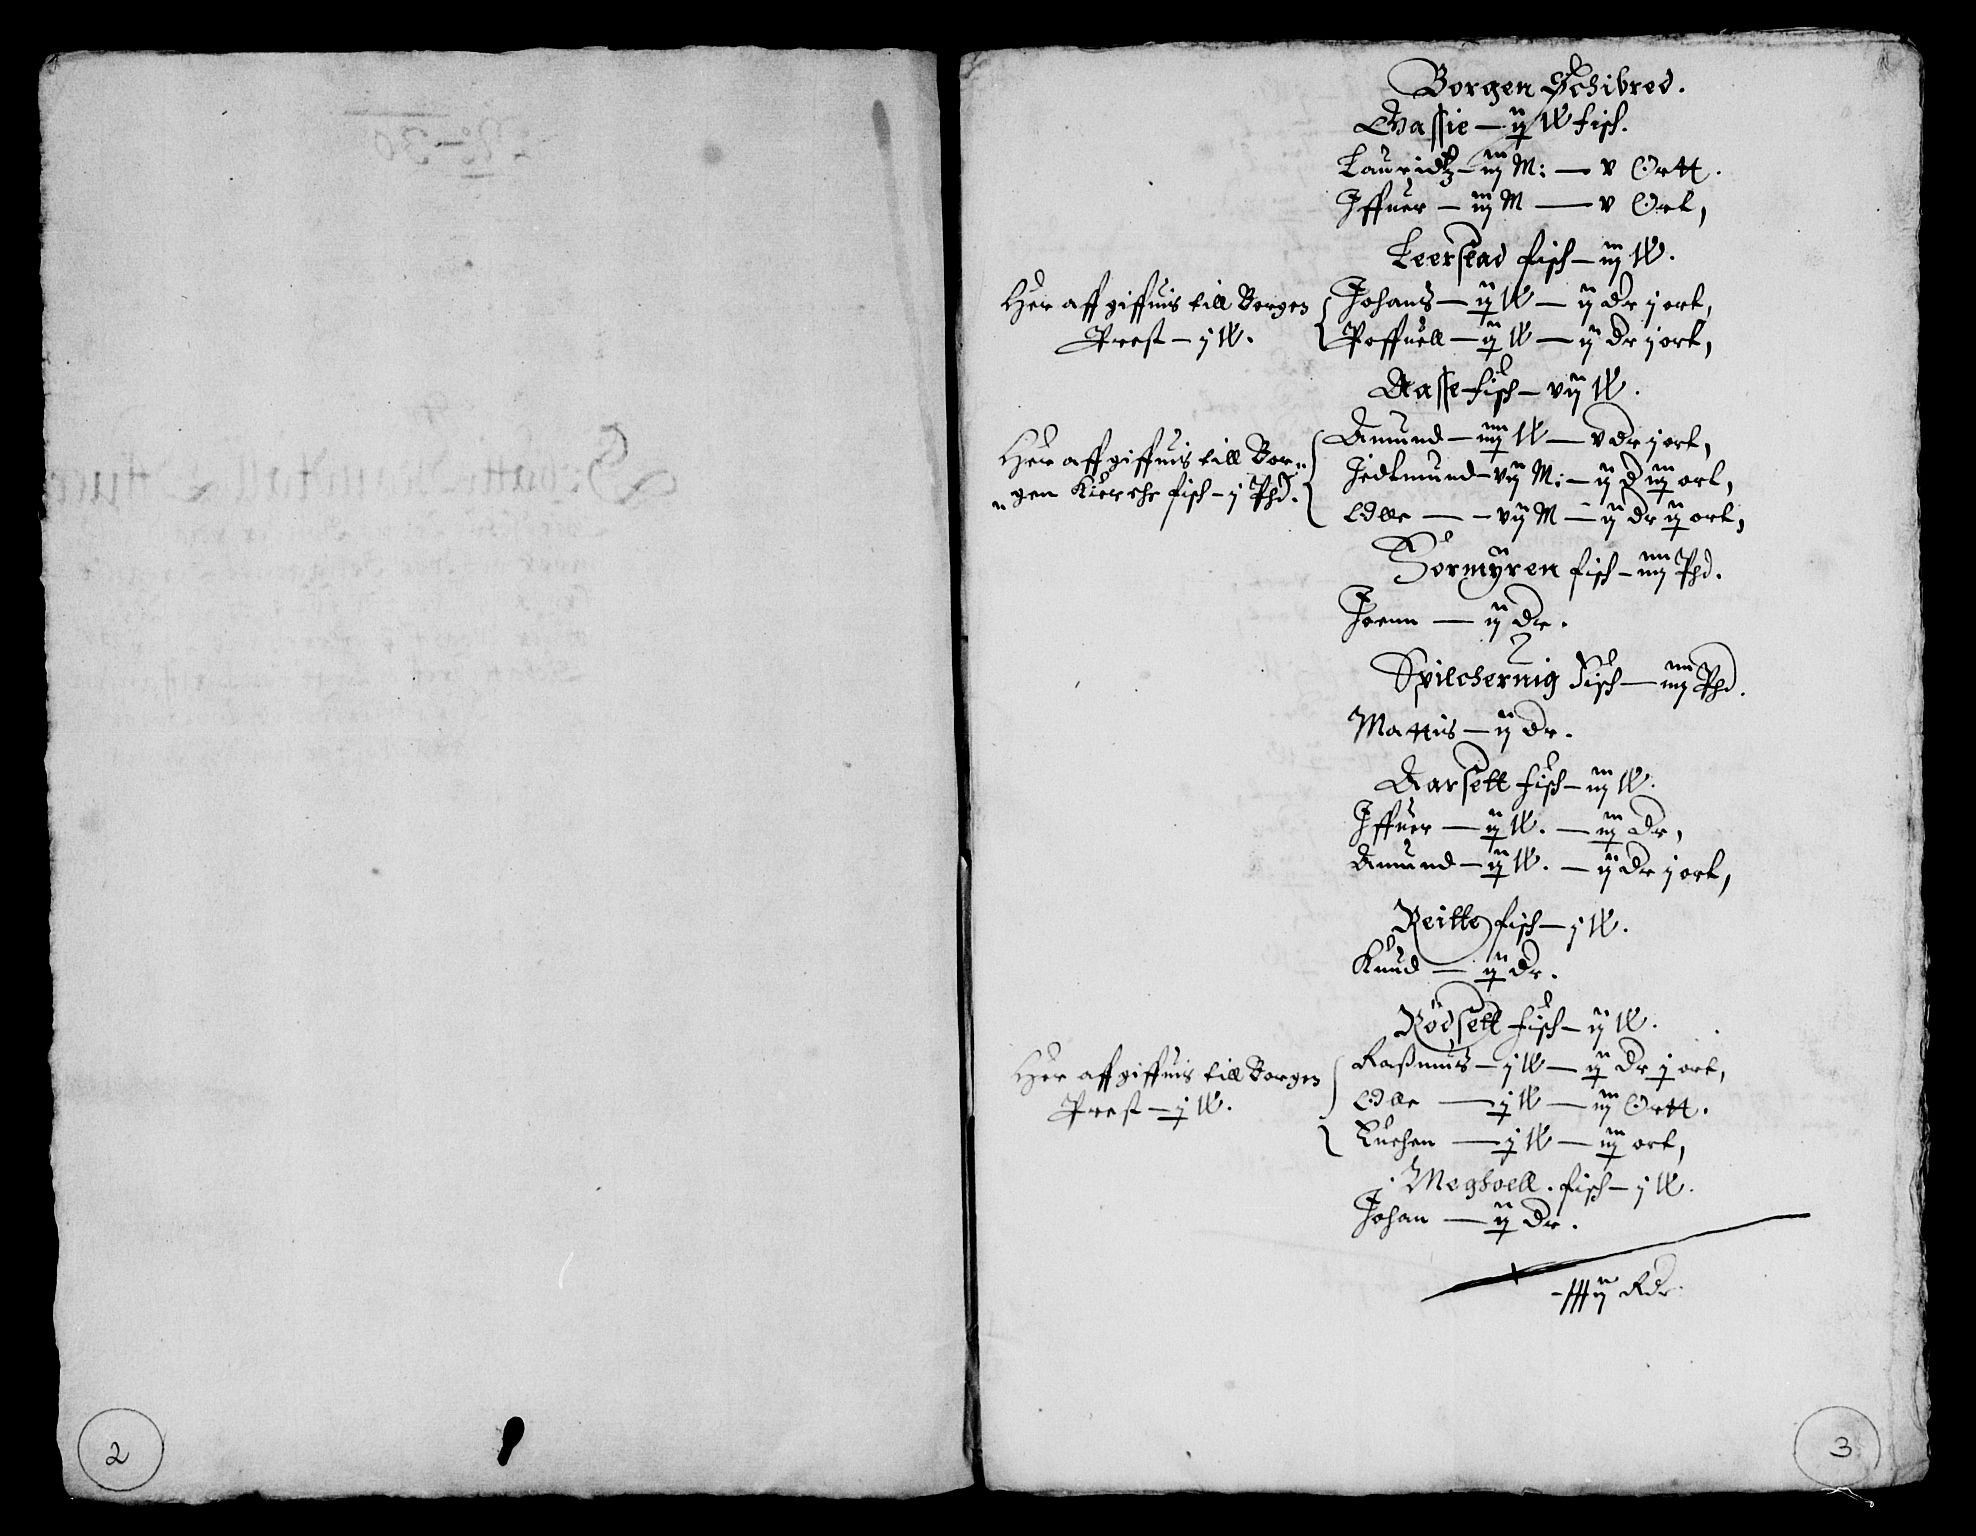 Borgen Schibred.
Gassie — ij W fisch.
Lauridtz — iij M: — v Ortt.
Iffuer — iij M — v Ort,
Leerstad fisch — iij W.
Her aff giffuis till Borgen
Prest — j W.
Johans — ij W — ij dr j ort,
Poffuell — ij W — ij dr j ort,
Aasse fisch — vij W.
Her aff giffuis till Bor„
„gen Kierche fisch — j Phd.
Amund — iiij W — v dr j ort,
Jedtmund — vij M: — ij d iij ort,
Edlle — vij M — ij dr ij ort,
Sormÿren fisch — iiij Phd.
Joenn — ij dr.
Spilchernig Fisch — iiij Phd.
Mattis — ij dr.
Aarsett fisch — iij W.
Iffuer — ij W. — iij dr,
Amund — ij W. — ij dr j ort,
Reitte fisch — j W.
Knud — ij dr.
Rödsett fisch — ij W.
Her aff giffuis till Borgen
Prest — j W.
Rasmus — j W — ij dr j ort,
Edlle — j W — iij Ortt.
Luchen — j W — iij ort,
Megsoell. fisch — j W.
Johan — ij dr.
Rdr.
2
3